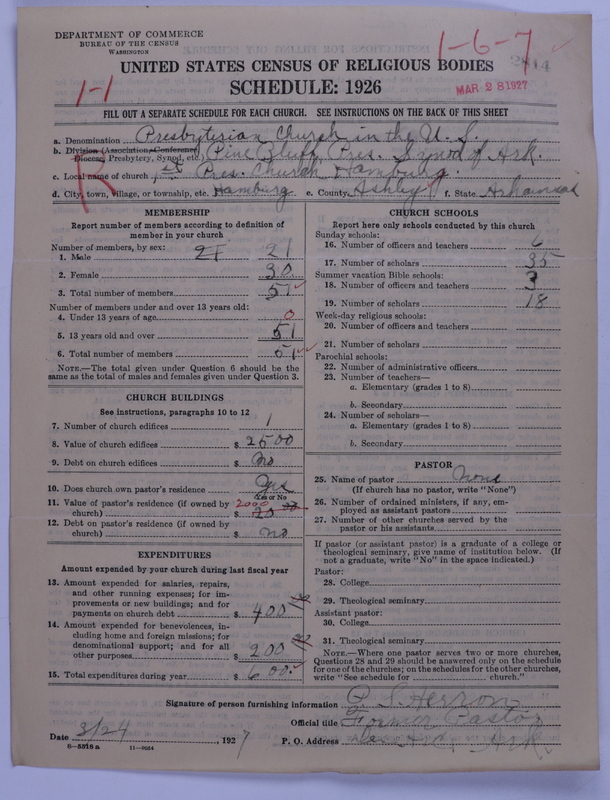 DEPARTMENT OF COMMERCE
BUREAU OF THE CENSUS
WASHINGTON
1-6-7
MAR 28 1927
UNITED STATES CENSUS OF RELIGIOUS BODIES
1-1
SCHEDULE: 1926
FILL OUT A SEPARATE SCHEDULE FOR EACH CHURCH. SEE INSTRUCTIONS ON THE BACK OF THIS SHEET
a. Denomination Presbyterian Church in the U.S.
b. Division (Association, Conference, Diocese, Presbytery, Synod, etc.) Pine Bluff Pres. Synod of Ark.
R
c. Local name of church 1st Pres. Church Hamburg.
d. City, town, village, or township, etc. Hamburg e. County Ashley f. State Arkansas
MEMBERSHIP
Report number of members according to definition of member in your church
Number of members, by sex:
1. Male 21 21
2. Female 30
3. Total number of members 51
Number of members under and over 13 years old:
4. Under 13 years of age 0
5. 13 years old and over 51
6. Total number of members 51
NOTE.—The total given under Question 6 should be the same as the total of males and females given under Question 3.
CHURCH BUILDINGS
See instructions, paragraphs 10 to 12
7. Number of church edifices 1
8. Value of church edifices $ 2500
9. Debt on church edifices $ No
10. Does church own pastor's residence Yes
Yes or No
11. Value of pastor's residence (if owned by church) $ 2000
12. Debt on pastor's residence (if owned by church) $ no
EXPENDITURES
Amount expended by your church during last fiscal year
13. Amount expended for salaries, repairs, and other running expenses; for improvements or new buildings; and for payments on church debt $ 400
14. Amount expended for benevolences, including home and foreign missions; for denominational support; and for all other purposes $ 200
15. Total expenditures during year $ 600
CHURCH SCHOOLS
Report here only schools conducted by this church
Sunday schools:
16. Number of officers and teachers 6
17. Number of scholars 35
Summer vacation Bible schools:
18. Number of officers and teachers 3
19. Number of scholars 18
Week-day religious schools:
20. Number of officers and teachers
21. Number of scholars
Parochial schools:
22. Number of administrative officers
23. Number of teachers—
a. Elementary (grades 1 to 8)
b. Secondary
24. Number of scholars—
a. Elementary (grades 1 to 8)
b. Secondary
PASTOR
25. Name of pastor None
(If church has no pastor, write "None")
26. Number of ordained ministers, if any, employed as assistant pastors
27. Number of other churches served by the pastor or his assistants
If pastor (or assistant pastor) is a graduate of a college or theological seminary, give name of institution below. (If not a graduate, write "No" in the space indicated.)
Pastor:
28. College
29. Theological seminary
Assistant pastor:
30. College
31. Theological seminary
NOTE.—Where one pastor serves two or more churches, Questions 28 and 29 should be answered only on the schedule for one of the churches; on the schedules for the other churches, write "See schedule for church."
Signature of person furnishing information Herron
Official title Former Pastor
Date 3/24, 1927
P. O. Address Ark.
8-5318 a 11-9034